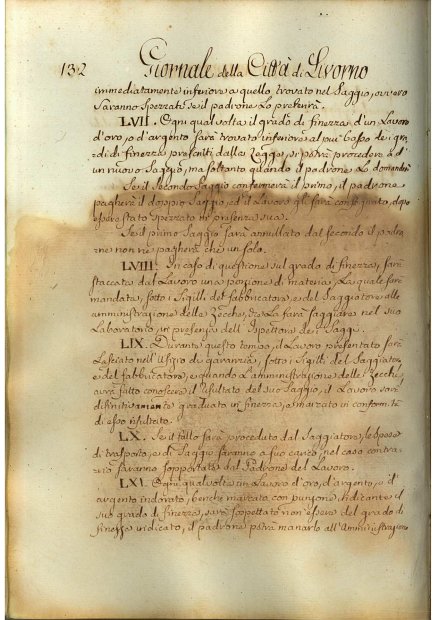 132 Giornale della Città di Livorno
immediatamente inferiore a quello trovato nel Saggio, ovvero
Saranno Spezzati se il padrone Lo preferirà.
LVII. Ogni qual volta il grado di finezza d'un Lavoro
d'oro, o d'argento sarà trovato inferiore al più basso dei gra
di di finezza prescritti dalla Legge, si potrà procedere a d'
un nuovo Saggio, ma soltanto quando il padrone Lo domandi
Se il secondo Saggio confermerà il primo, il padrone
pagherà il doppio Saggio, ed il Lavoro gli sarà consegnato, dopo
essere stato Spezzato in presenza sua.
Se il primo Saggio sarà annullato dal secondo il padro
ne non ne pagherà che un solo.
LVIII. In caso di questione sul grado di finezza, sarà
staccata dal Lavoro una porzione di materia, La quale sarà
mandata, sotto i Sigilli del fabbricatore, e del Saggiatore alle
amministrazione delle Zecche, che La farà Saggiare nel suo
Laboratorio, in presenza dell' Ispettore dei Saggi.
LIX. Durante questo tempo, il Lavoro presentato sarà
Lasciato nell'Ufizio di garanzia, sotto i Sigilli del Saggiatore
e del fabbricatore, e quando L'amministrazione delle Zecche
avrà fatto conoscere il resultato del suo Saggio, il Lavoro sarà
difinitivamente graduato in finezza, e marcato in conformità
di esso resultato.
LX. Se il fallo sarà proceduto dal Saggiatore, le spese
di trasporto, e di Saggio saranno a suo carico, nel caso contra
rio saranno sopportate dal Padrone del Lavoro.
LXI. Ogni qual volta un Lavoro d'oro, d'argento, o d'
argento indorato, benchè marcato con punzone, indicante il
suo grado di finezza, sarà sospettato non essere del grado di
finezza indicato, il padrone potrà mandarlo all'Amministrazione